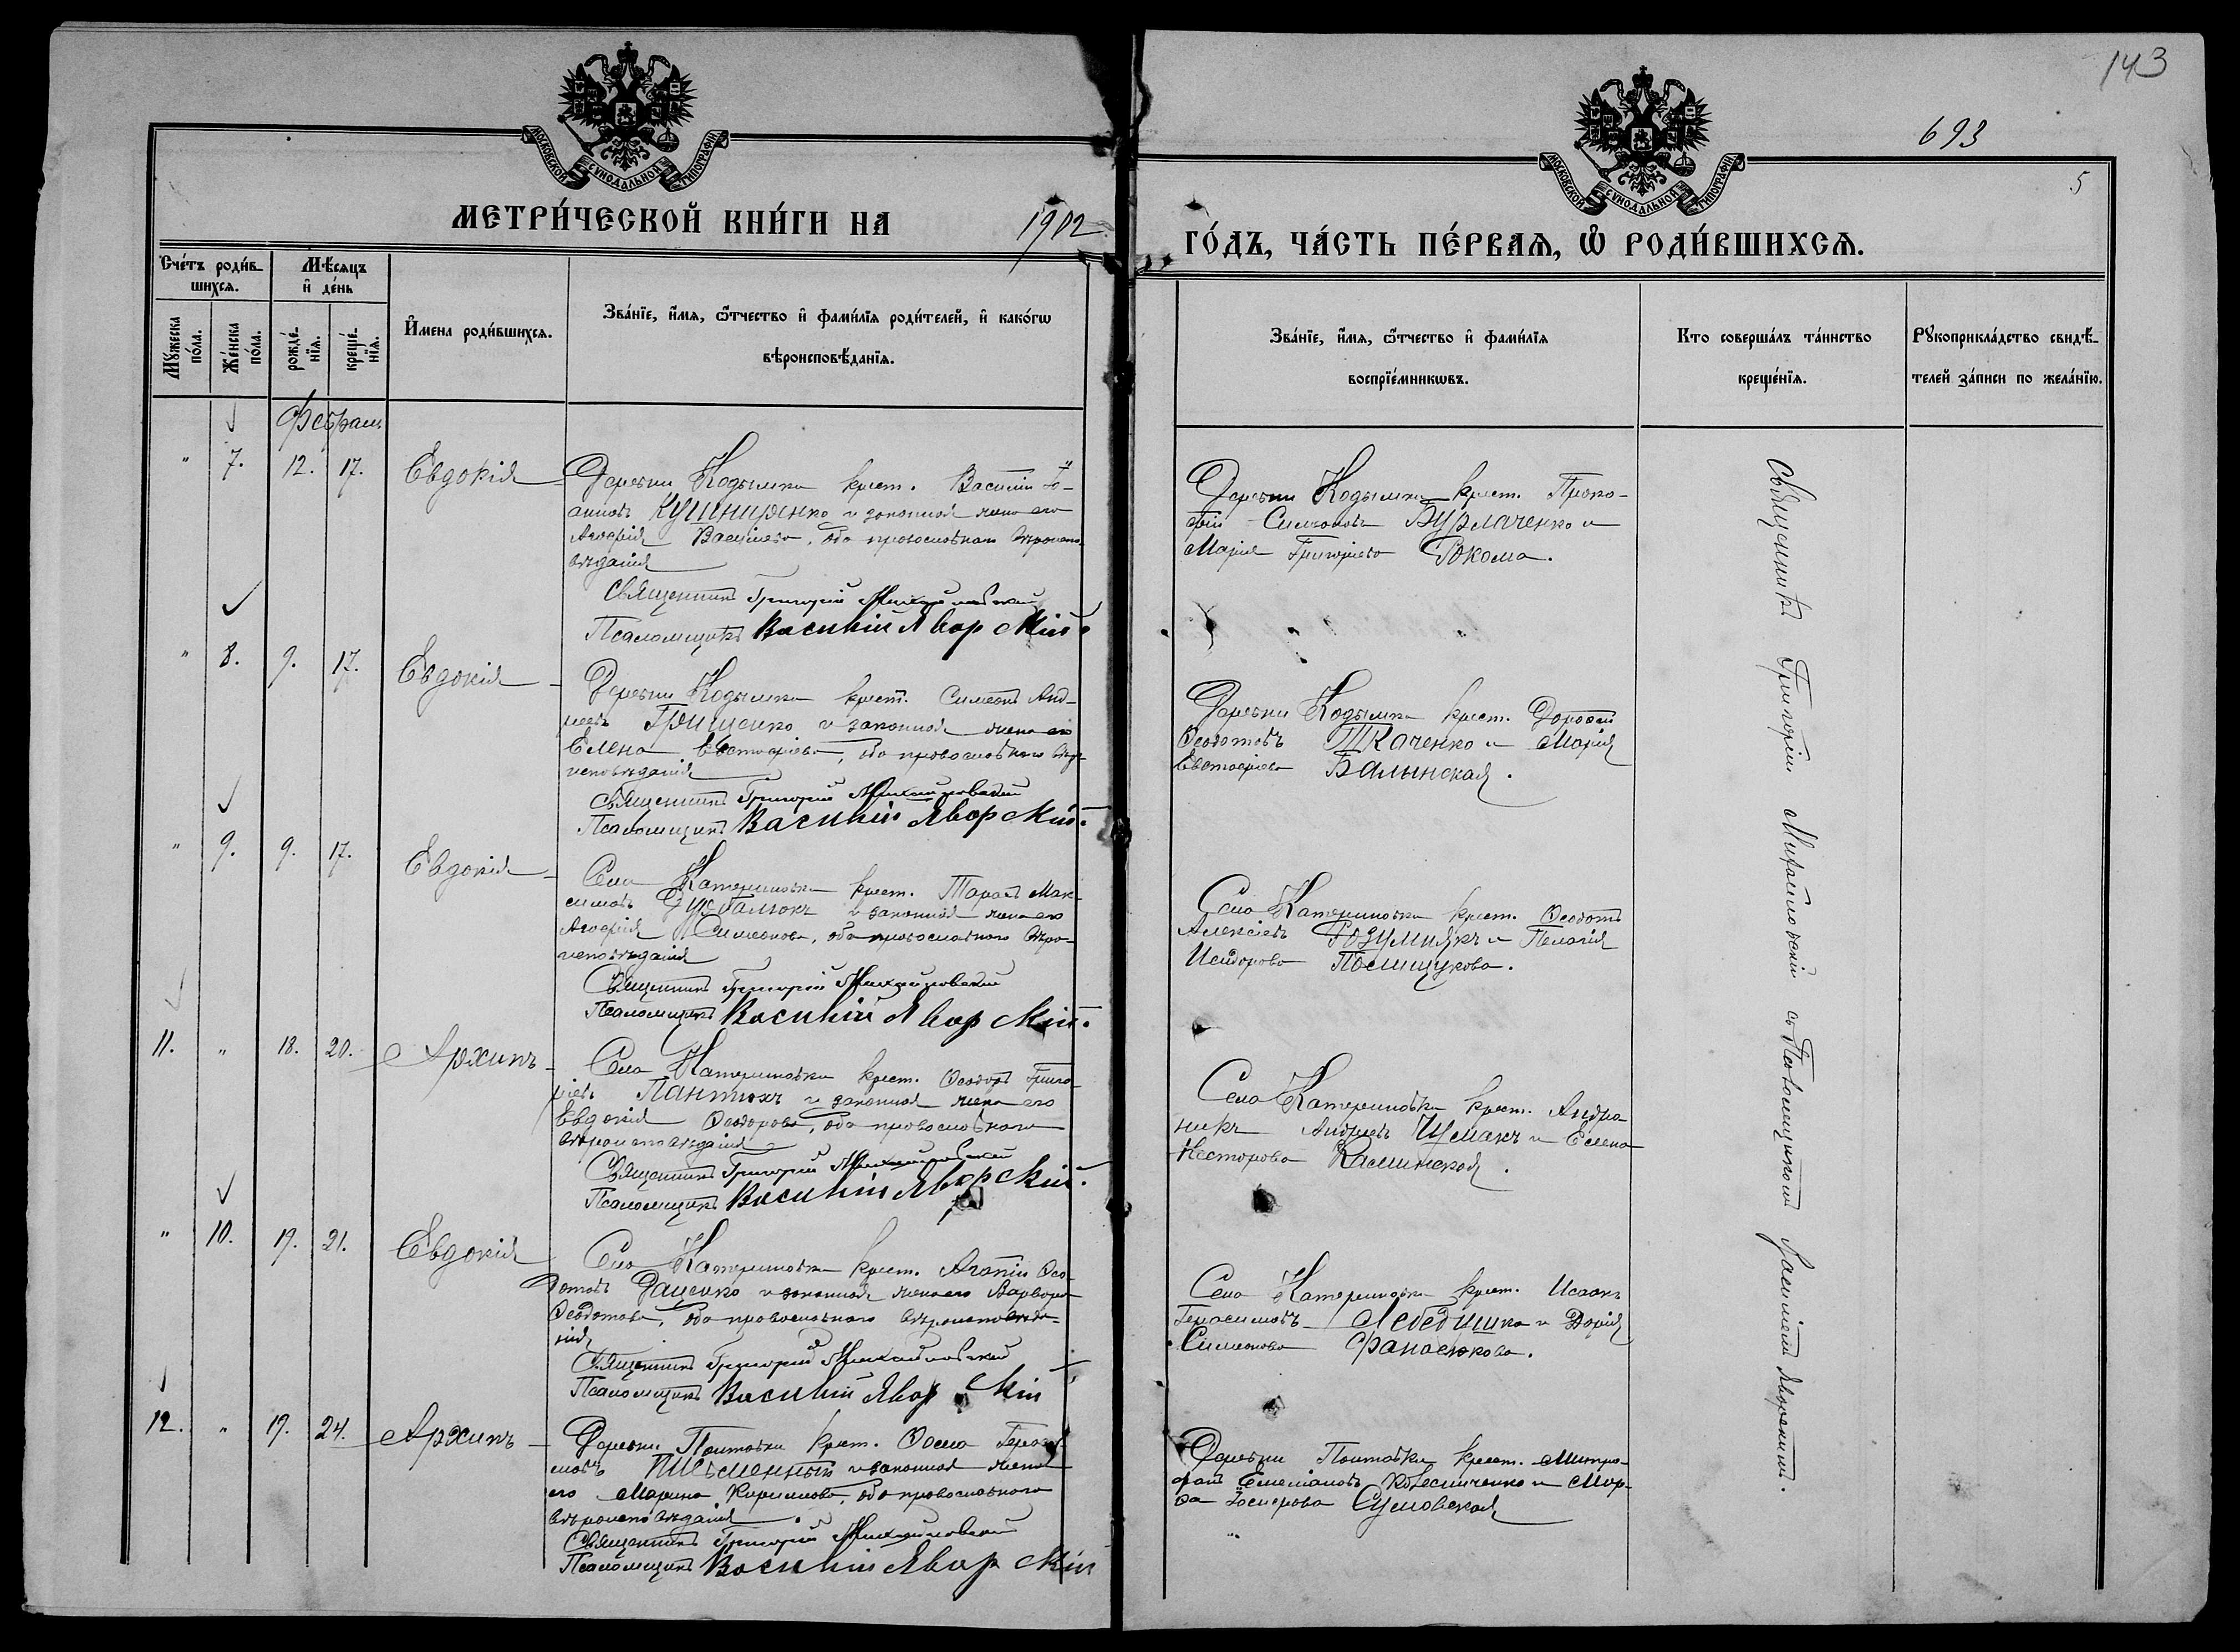 143
693
5
МОСКОВСКОЙ СѴНОДАЛЬНОЙ ТИПОГРАФІИ
МОСКОВСКОЙ СѴНОДАЛЬНОЙ ТИПОГРАФІИ
МЕТРИ́ЧЕСКОЙ КНИ́ГИ НА 1902
ГО́ДЪ, ЧА́СТЬ ПЕ́РВАѦ, Ѡ РОДИ́ВШИХСѦ.
Сче́тъ роди́в-
шихсѧ.
Мꙋжеска по́ла.
Же́нска по́ла.
Мѣ́сѧцъ
и҆ де́нь
рожде́-
нїѧ.
креще́-
нїѧ.
И҆мена роди́вшихсѧ.
Зва́нїе, и҆́мѧ, ѻ҆́тчество и҆ фами́лїѧ роди́телей, и҆ како́гѡ
вѣроисповѣ́данїѧ.
Зва́нїе, и҆́мѧ, ѻ҆́тчество и҆ фами́лїѧ
воспрїе́мникѡвъ.
Кто соверша́лъ та́инство
креще́нїѧ.
Рꙋкоприкла́дство свидѣ́-
телей за́писи по жела́нїю.
Февраль
" 7. 12. 17. Евдокія
Деревни Кодымки крест. Василій Іо-
анновъ Кушнирянко и законная жена его
Агафія Васильева, оба православнаго вѣроиспо-
вѣданія
Священникъ Григорій Михайловскій
Псаломщикъ Василій Яворскій
Деревни Кодымки крест. Проко-
фій Симеоновъ Бурлаченко и
Марія Григоріева Рокома.
" 8. 9. 17. Евдокія
Деревни Кодымки крест. Симеонъ Анд-
реевъ Грищенко и законная жена его
Елена Евстафіева, оба православнаго вѣро-
исповѣданія
Священникъ Григорій Михайловскій
Псаломщикъ Василій Яворскій
Деревни Кодымки крест. Дорофей
Ѳеодотовъ Ткаченко и Марія
Евстафіева Балынская.
" 9. 9. 17. Евдокія
Села Катериновки крест. Тарасъ Мак-
симовъ и законная жена его
Агафія Симеонова, оба православнаго вѣро-
исповѣданія
Священникъ Григорій Михайловскій
Псаломщикъ Василій Яворскій
Села Катериновки крест. Ѳеодотъ
Алексіевъ Розумнякъ и Пелагія
Исидорова Полищукова.
11. " 18. 20. Архипъ
Села Катериновки крест. Ѳеодоръ Григо-
ріевъ Пантюхъ и законная жена его
Евдокія Ѳеодорова, оба православнаго
вѣроисповѣданія
Священникъ Григорій Михайловскій
Псаломщикъ Василій Яворскій
Села Катериновки крест. Андро-
никъ Андреевъ Чумакъ и Елена
Несторова Калинская.
" 10. 19. 21. Евдокія
Села Катериновки крест. Агапій Ѳео-
дотовъ Даценко и законная жена его Варвара
Ѳеодотова, оба православнаго вѣроисповѣда-
нія
Священникъ Григорій Михайловскій
Псаломщикъ Василій Яворскій
Села Катериновки крест. Исаакъ
Герасимовъ Лебедишко и Дарія
Симеонова Фанасюкова.
12. " 19. 24. Архипъ
Деревни Полтавки крест. Ѳома Гераси-
мовъ Письменный и законная жена
его Марина Кириллова, оба православнаго
вѣроисповѣданія
Священникъ Григорій Михайловскій
Псаломщикъ Василій Яворскій
Деревни Полтавки крест. Митро-
фанъ Емеліановъ Колесниченко и Мар-
ѳа Іосифова Сумовская
Священникъ Григорій Михайловскій съ Псаломщикомъ Василіемъ Яворскимъ.